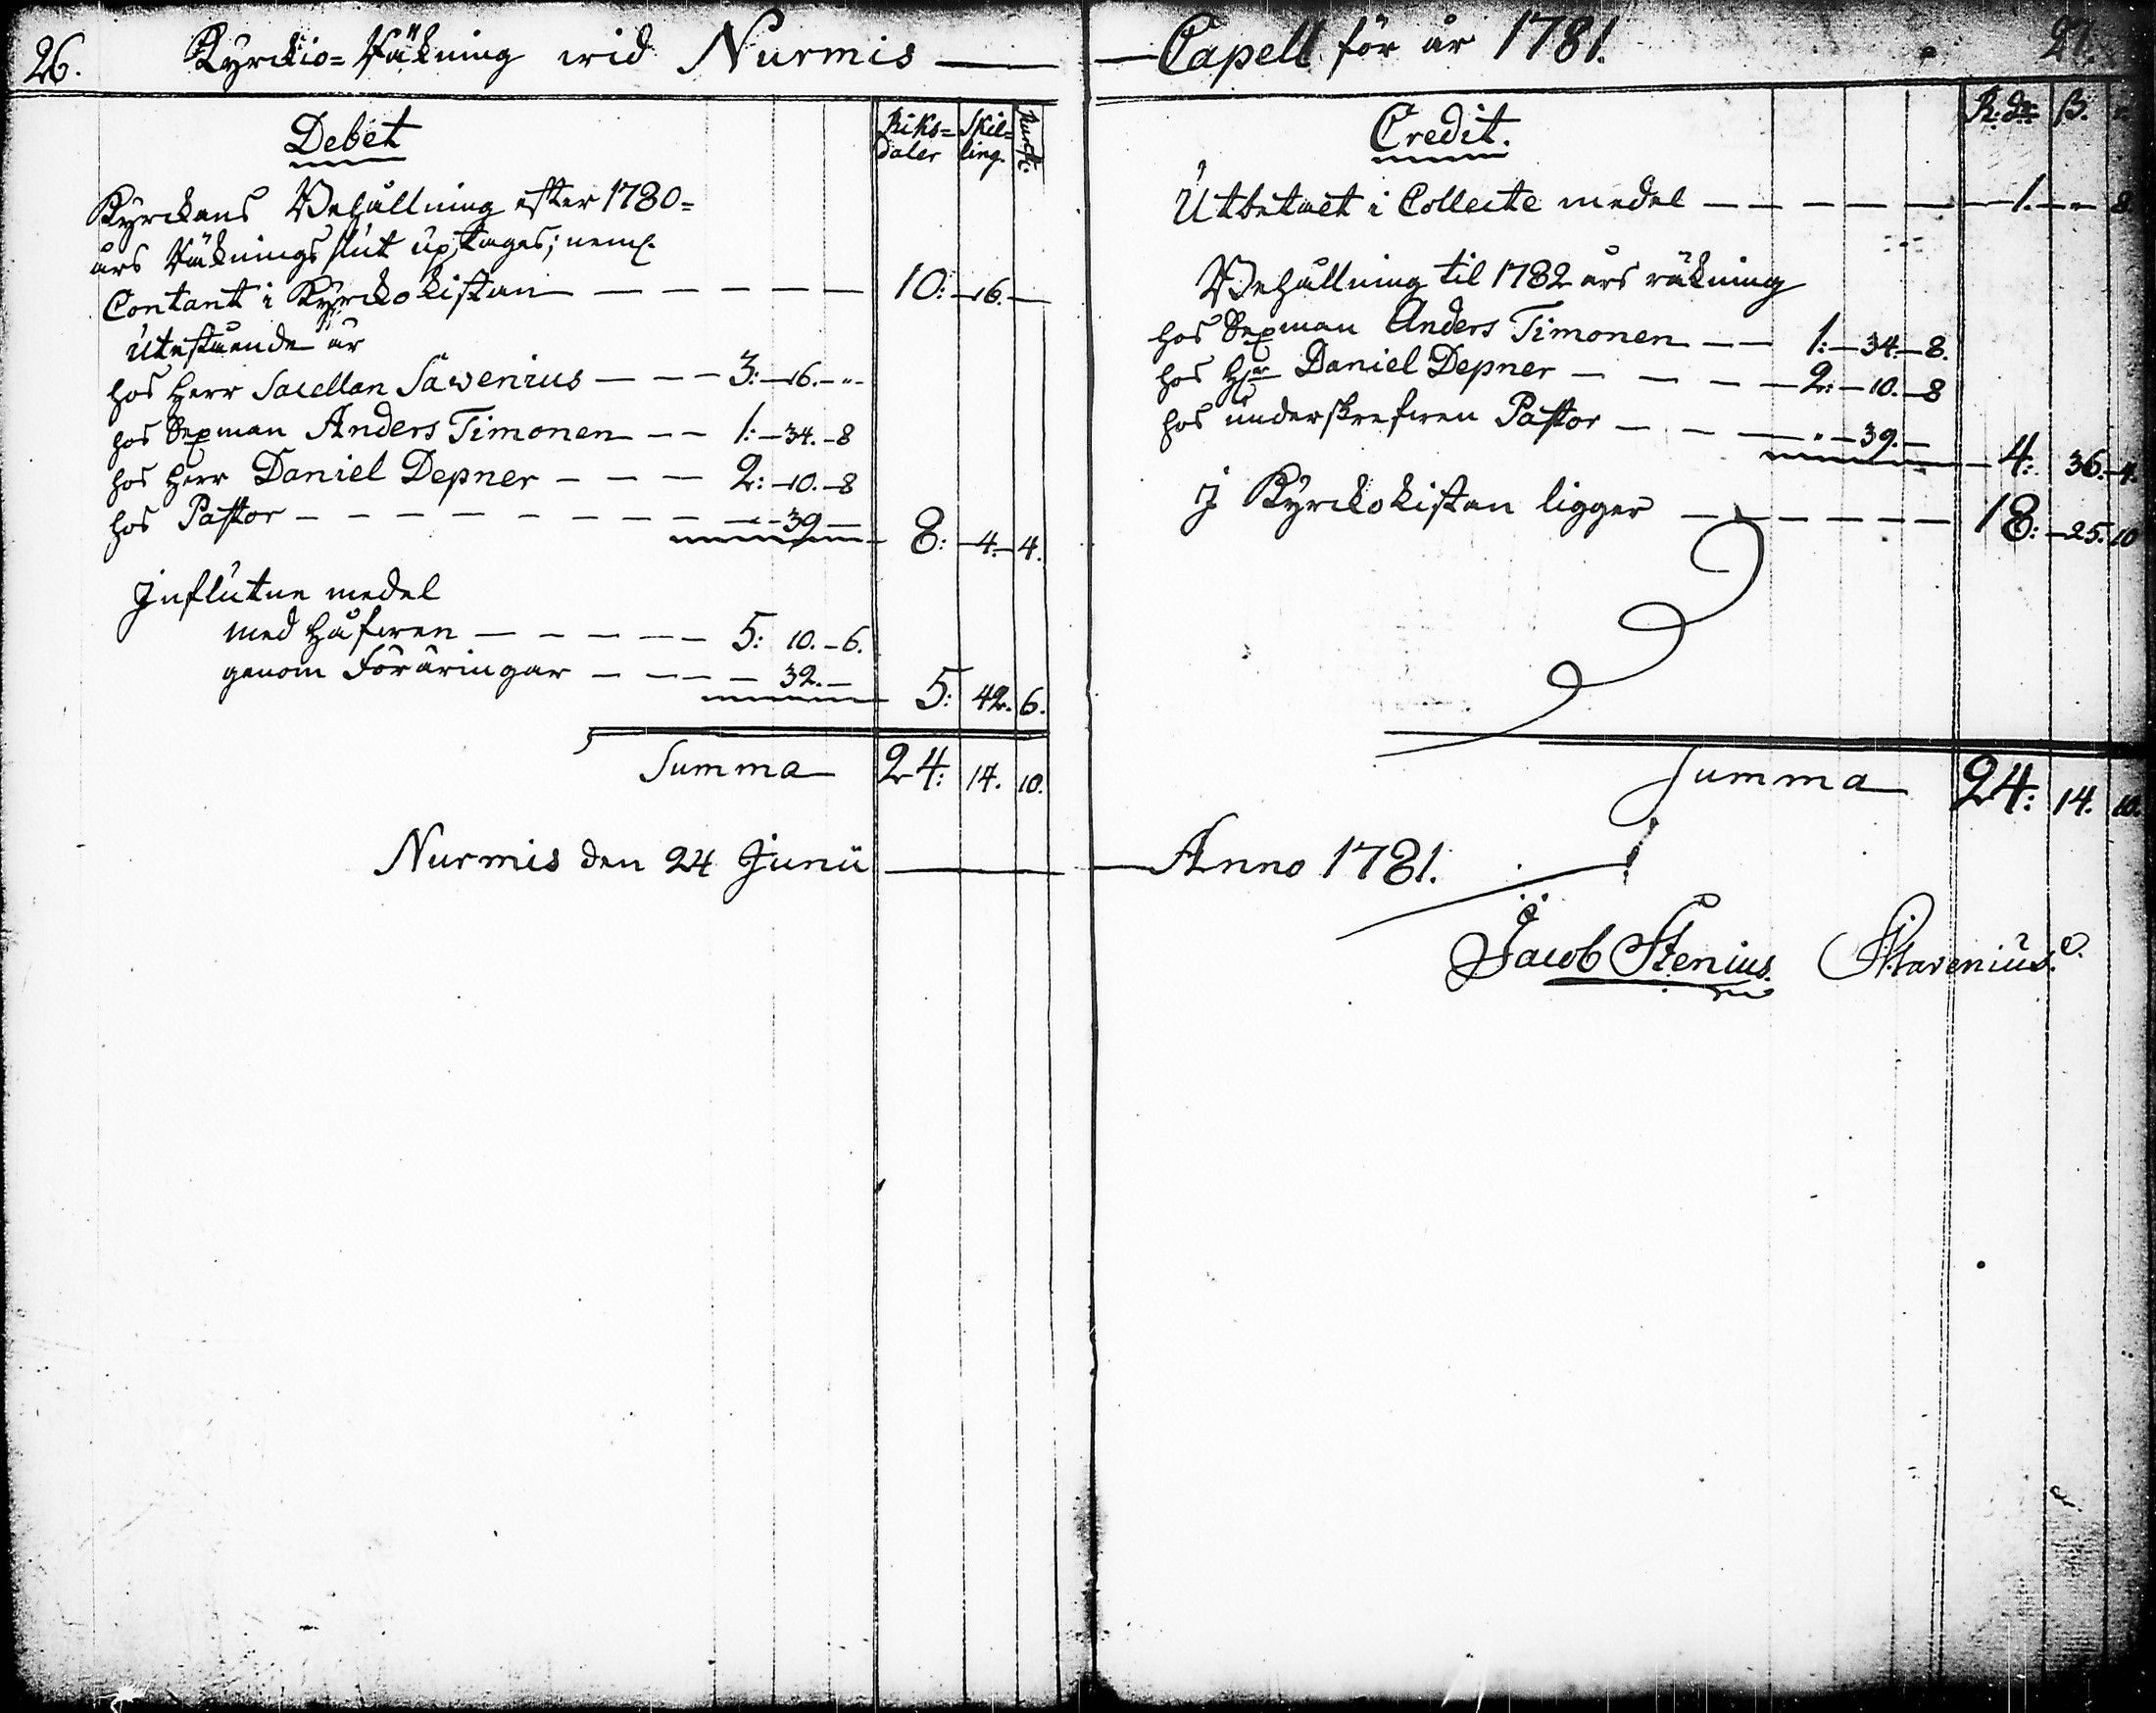 26. Kyrckio=Räkning wid Nurmis
Debet
Riks=daler Skil=ling. Runst:
Kyrckans Behållning efter 1780=
års Räknings slut uptages; neml.
Contant i Kyrckokistan — — — — — 10: — 16. —
Utestående är
hos Herr Sacellan Sawenius — — — 3: — 16. — "
hos Sexman Anders Timonen — — 1: — 34. — 8
hos Herr Daniel Depner — — — 2: — 10. — 8
hos Pastor — — — — — — — — " — 39 — 8: — 4. — 4.
Influtne medel
med Håfwen — — — — — 5: 10. — 6.
genom Föräringar — — — — 32. — 5: 42. 6.
Summa 24: 14. 10.
Nurmis den 24 Junii
Capell för år 1781. 27.
Credit.
R:dr ß.
Utbetalt i Collecte medel — — — — — 1. — " 8
Behållning til 1782 års räkning
hos Sexman Anders Timonen — — 1: — 34. — 8.
hos Hr Daniel Depner — — — — 2: — 10. — 8
hos underskrefwen Pastor — — — " — 39. — 4: 36. — 4.
J Kyrckokistan ligger — — — — — 18: — 25. 10
Summa 24: 14. 10.
Anno 1781.
Jacob Stenius.